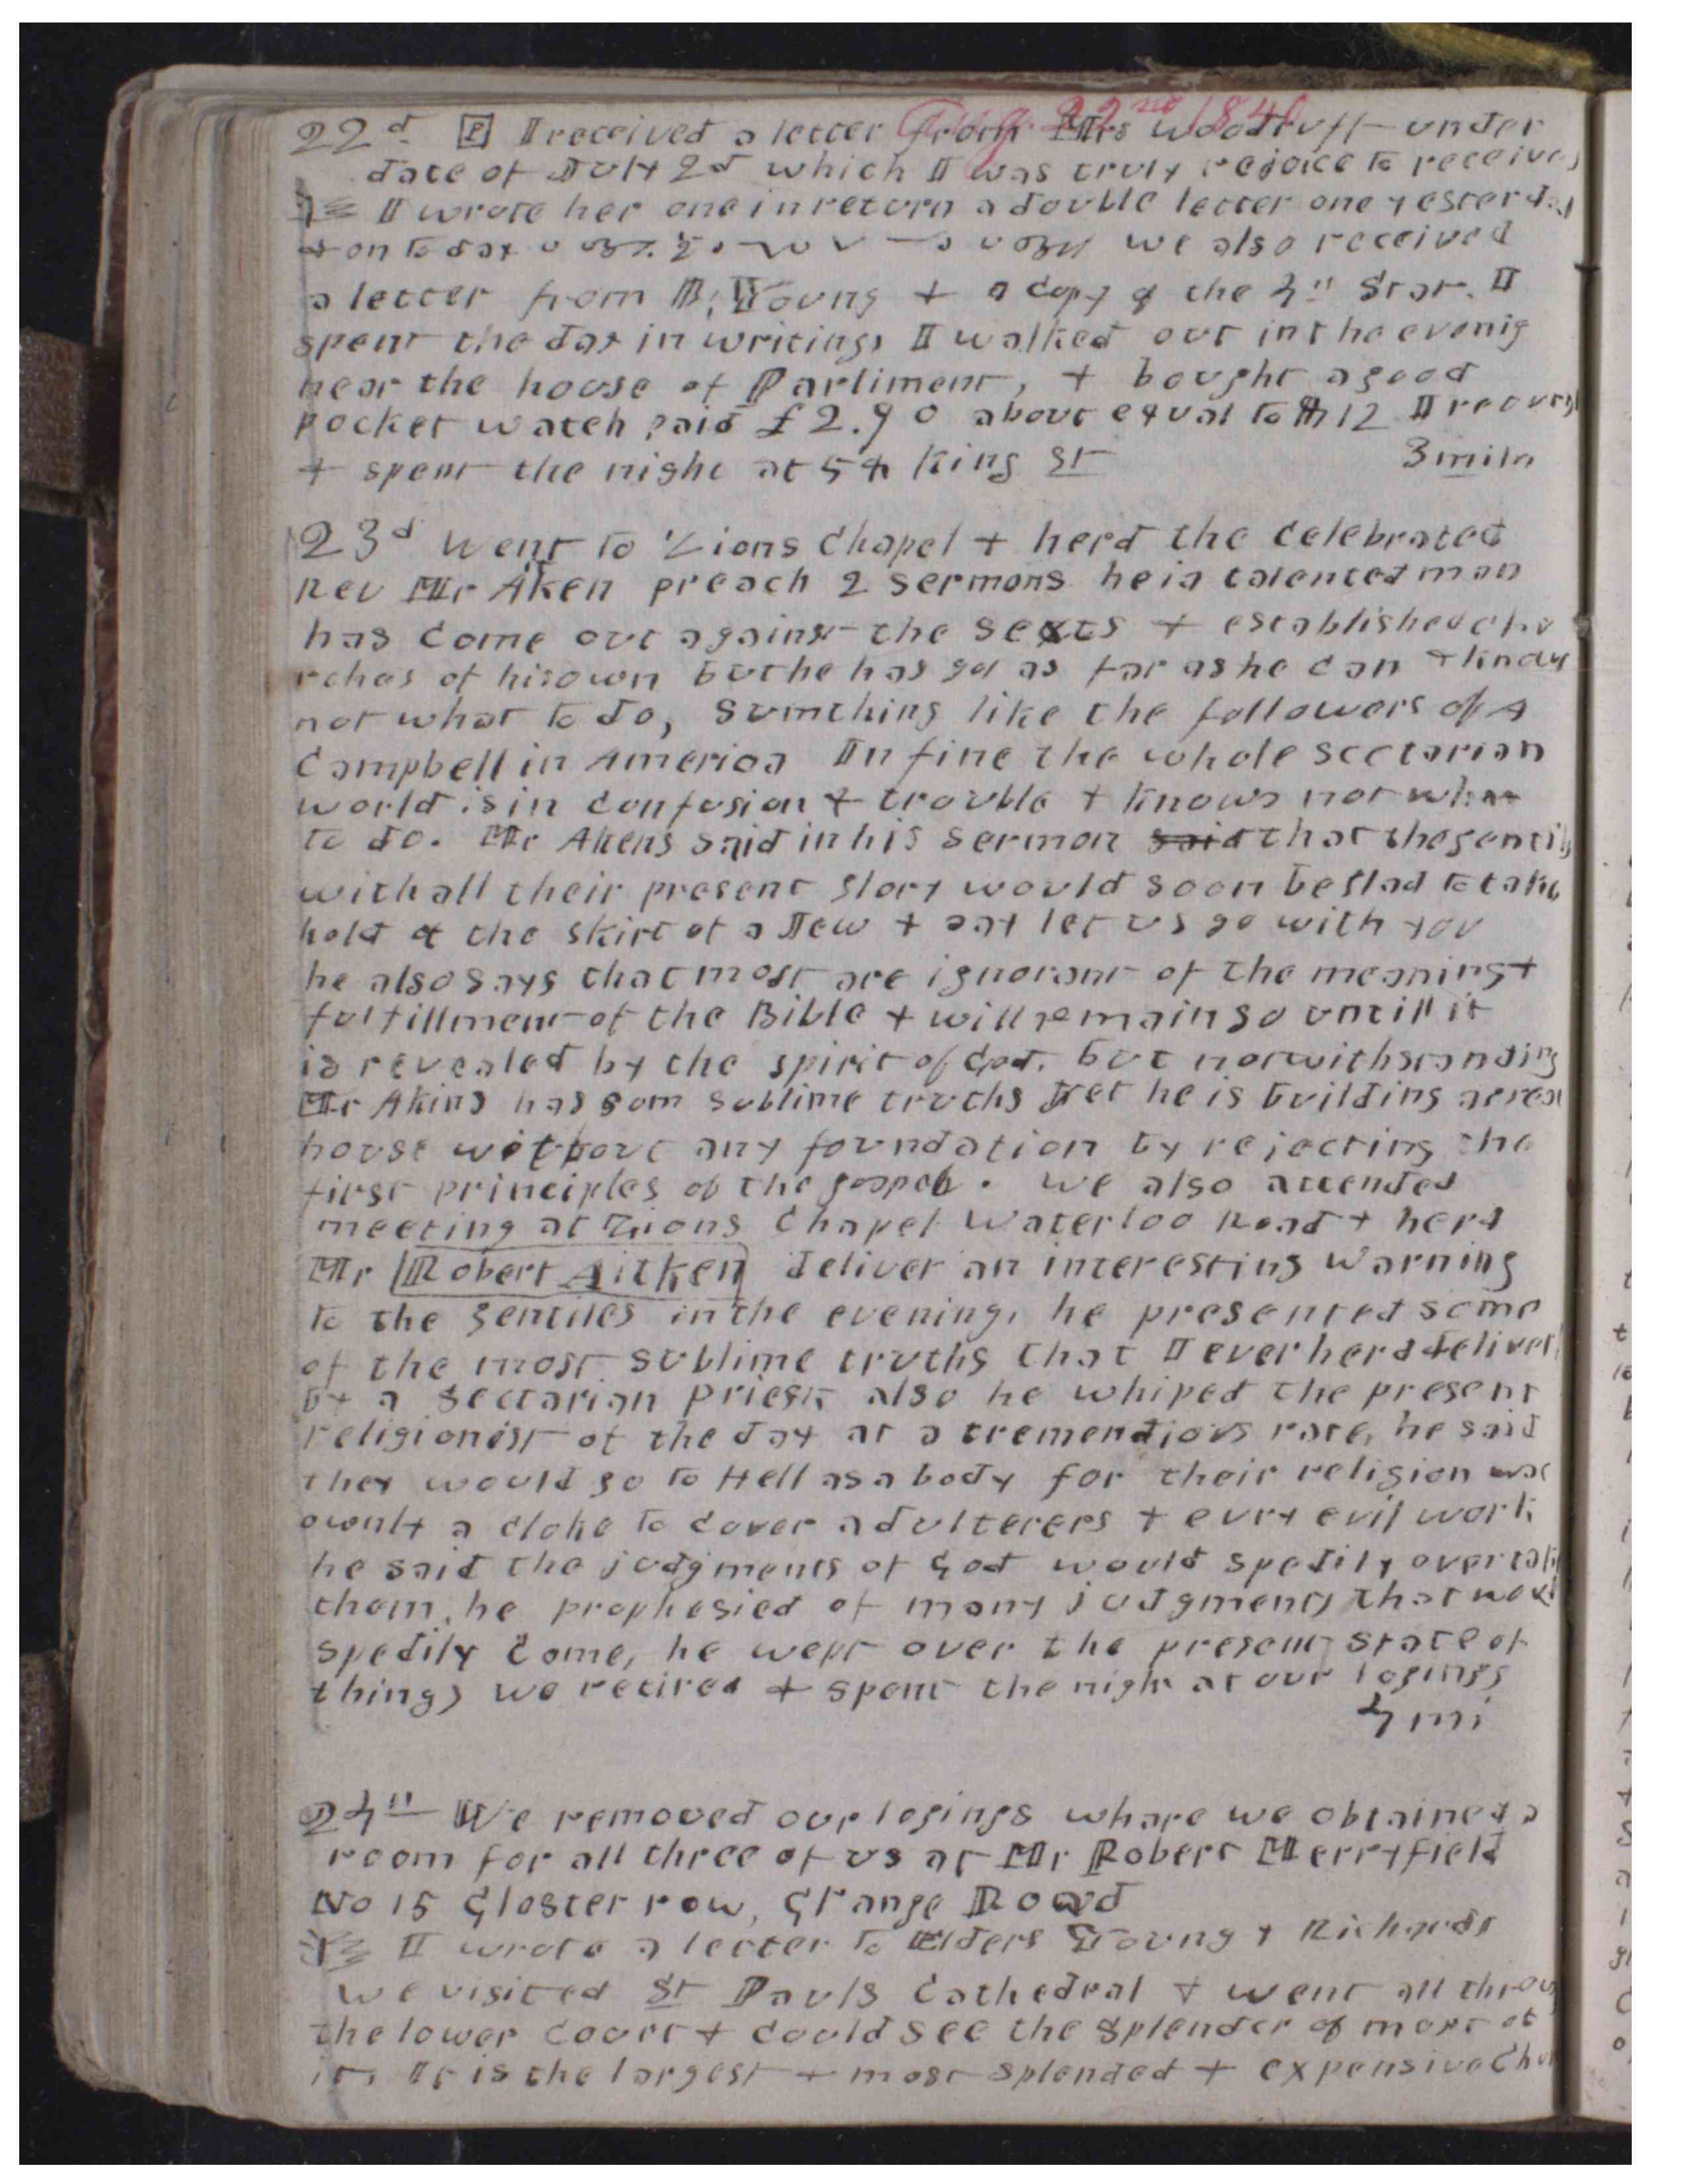 Aug. 22nd 1840
22d. P I received a letter from Mrs Woodruff under
date of July 2d which I was truly rejoice to receive,
I wrote her one in return a double letter one yesterday
+ on to day we also received
a letter from B, Young + a copy of the 4th Star. I
spent the day in writing, I walked out in the evenig
near the house of Parliment, + bought a good
pocket watch paid £2.90 about equal to $12 I returned
+ spent the night at 54 King St 3 mile
23d Went to Zions Chapel + herd the celebrated
Rev Mr Aken preach 2 Sermons he is talented man
has come out against the Sects + established chu
rches of his own but he has got as far as he can +
not what to do, Sumthing like the followers of A
Campbell in America In fine the whole sectarian
world is in confusion + trouble + knows not what
to do. Mr Akens said in his Sermon said that the gentiles
with all their present glory would soon be glad to take
hold of the skirt of a Jew + say let us go with you
he also says that most are ignorant of the meaning +
fulfillment of the Bible + will remain so untill it
is revealed by the spirit of God. but notwithstanding
Mr Akins has som sublime truths yet he is building a great
house without any foundation by rejecting the
first principles of the gospel. we also attended
meeting at Zions Chapel Waterloo Road + herd
Mr Robert Aitken deliver an interesting warning
to the gentiles in the evening, he presented some
of the most sublime truths that I ever herd deliver
by a Sectarian Priest, also he whiped the present
religionist of the day at a tremendious rate, he said
they would go to Hell as a body for their religion was
ownly a cloke to cover adulterers + evry evil work
he said the judgments of God would spedily overtake
them, he prophesied of many judgments that would
spedily come, he wept over the present state of
things we retired + spent the night at our logings
4 mi
24th We removed our logings whare we obtained a
room for all three of us at Mr Robert Merryfield
No 15 Gloster row, Grange Road
I wrote a letter to Elders Young + Richards
we visited St Pauls Cathedral + went all throug
the lower court + could see the splender of most of
it, It is the largest + most splended + expensive Chu